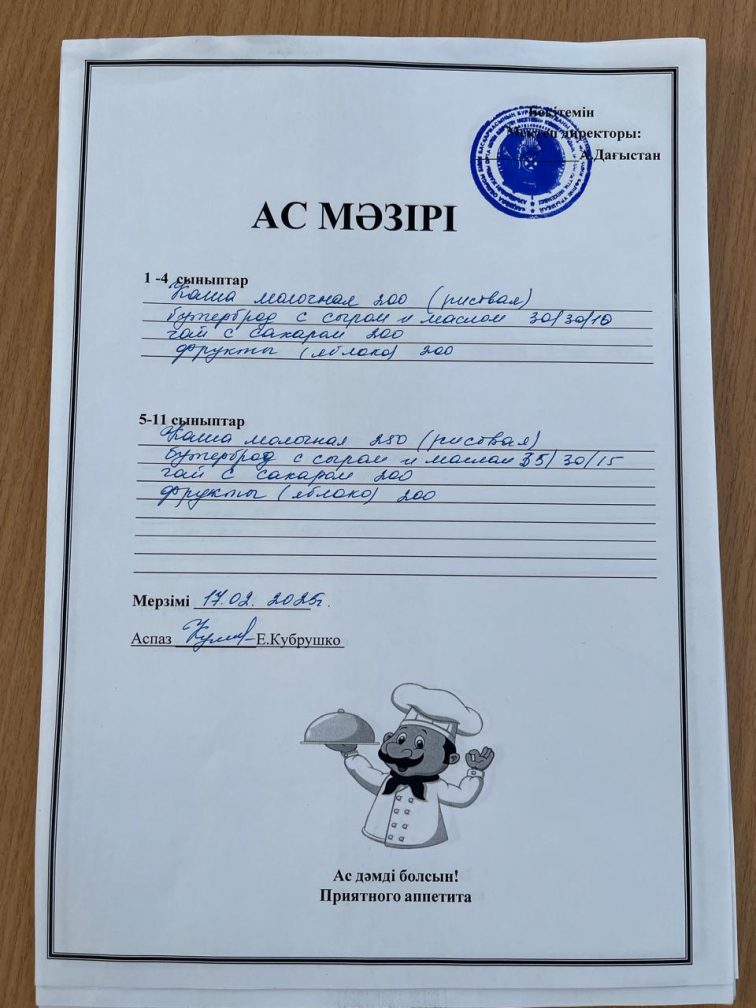 Бекітемін
Мектеп директоры:
А.Дағыстан
АС МӘЗІРІ
1 -4 сыныптар
Каша молочная 200 (рисовая)
бутерброд с сыром и маслом 30/30/10
чай с сахаром 200
фрукты (яблоко) 200
5-11 сыныптар
Каша молочная 250 (рисовая)
бутерброд с сыром и маслом 35/30/15
чай с сахаром 200
фрукты (яблоко) 200
Мерзімі 17.02. 2025г.
Аспаз Е.Кубрушко
Ас дәмді болсын!
Приятного аппетита